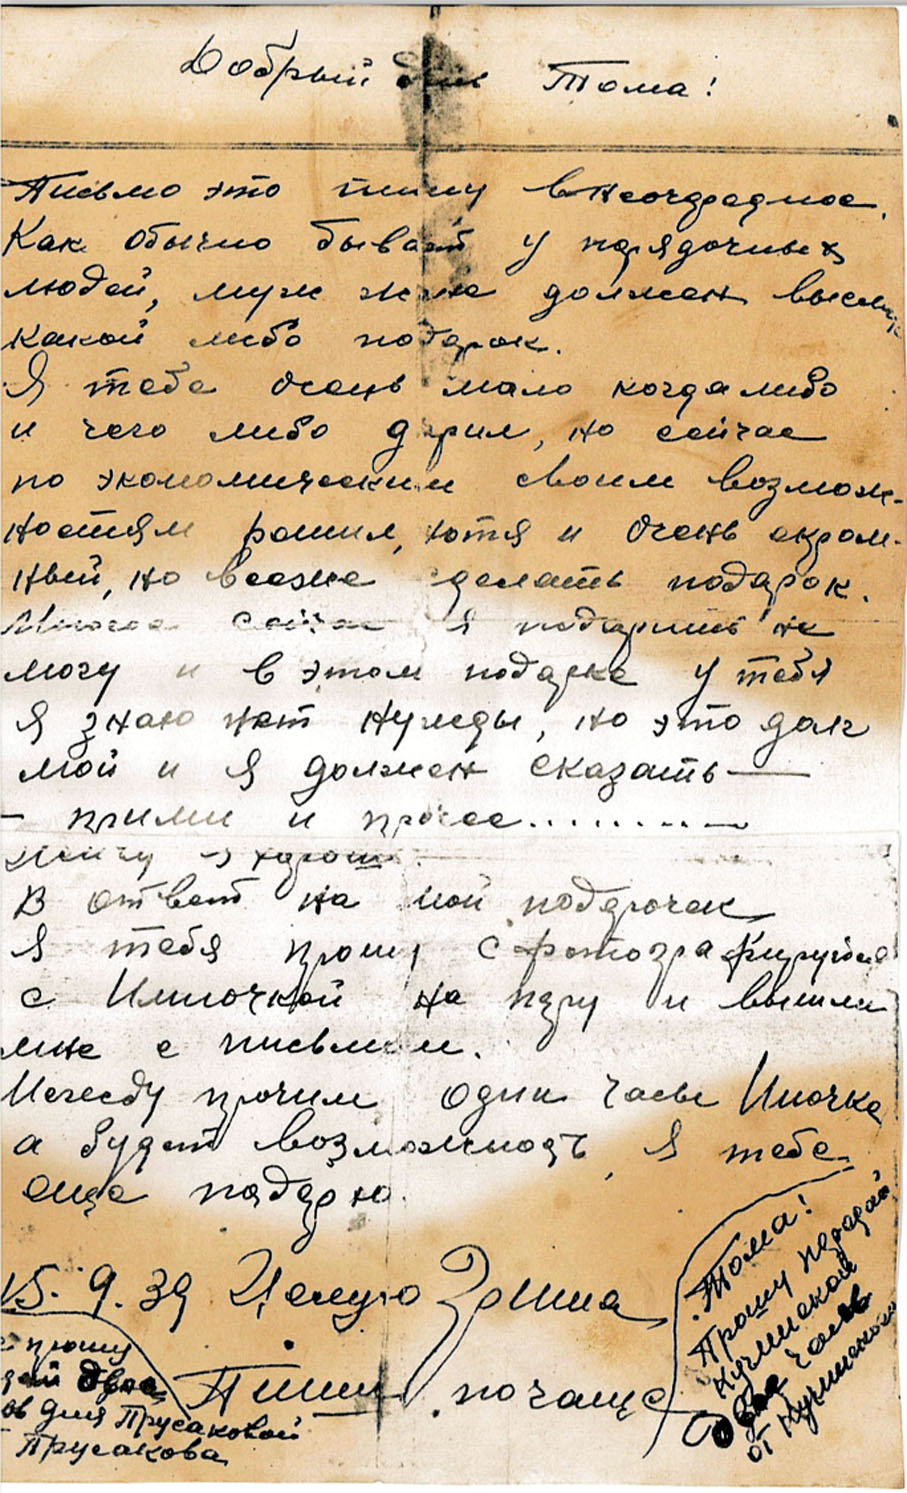 Добрый день Тома!
Письмо это пишу внеочередное.
Как обычно бывает у порядочных
людей, муж жене должен выслать
какой либо подарок.
Я тебе очень мало когда либо
и чего либо дарил, но сейчас
по экономическим своим возмож-
ностям решил, хотя и очень скром-
ный, но все же сделать подарок.
Многое сейчас я подарить не
могу и в этом подарке у тебя
я знаю нет нужды, но это долг
мой и я должен сказать —
— прими и прочее..........—
В ответ на мой подарочек
я тебя прошу сфотографируйся
с Инночкой на пару и вышли
мне с письмом.
Между прочим одни часы Иночке,
а будет возможность, я тебе
еще подарю.
15.9.39 Целую Зяма
Пиши почаще
Тома!
Прошу передай
Кучинской
две часов
от Кучинского
прошу
дай двое
ов для Прусаковой
Прусакова